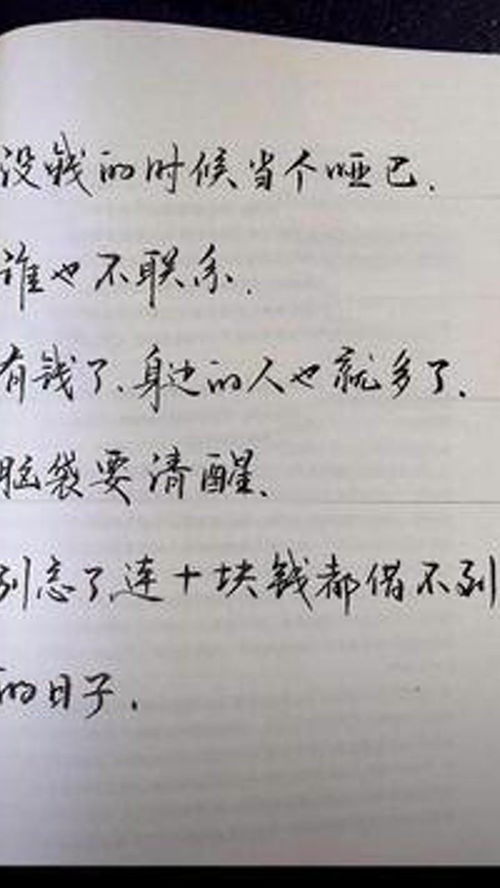 没钱的时候当个哑巴.
谁也不联系.
有钱了.身边的人也就多了.
脑袋要清醒.
别忘了连十块钱都借不到
的日子.